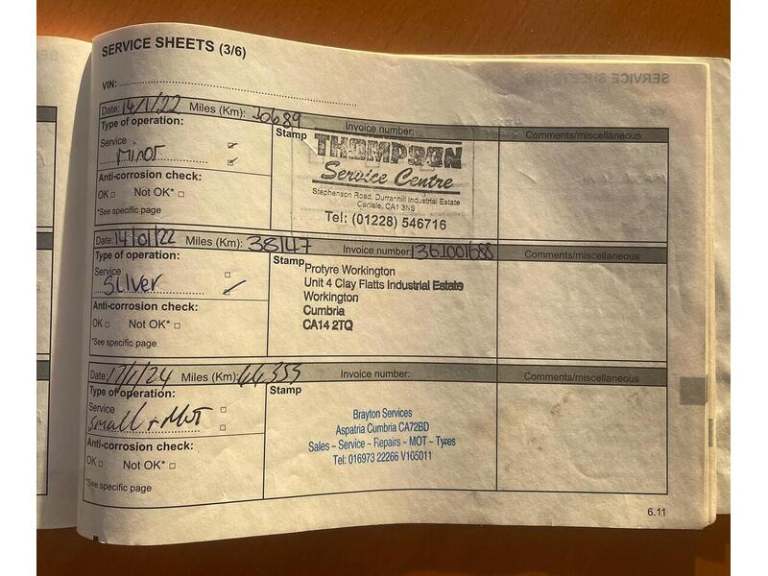 SERVICE SHEETS (3/6)
VIN:
Date: 14/1/22 Miles (Km): 30689 Invoice number:
Comments/miscellaneous
Type of operation:
Service
Minor
Anti-corrosion check:
OK Not OK*
*See specific page
Stamp
THOMPSON
Service Centre
Stephenson Road, Durranhill Industrial Estate
Carlisle, CA1 3NS
Tel: (01228) 546716
Date: 14/01/22 Miles (Km): 38147 Invoice number: 1361001688
Comments/miscellaneous
Type of operation:
Service
Silver
Anti-corrosion check:
OK Not OK*
*See specific page
Stamp
Protyre Workington
Unit 4 Clay Flatts Industrial Estate
Workington
Cumbria
CA14 2TQ
Date: 17/1/24 Miles (Km): 66,355 Invoice number:
Comments/miscellaneous
Type of operation:
Service
Small + MOT
Anti-corrosion check:
OK Not OK*
*See specific page
Stamp
Brayton Services
Aspatria Cumbria CA72BD
Sales - Service - Repairs - MOT - Tyres
Tel: 016973 22266 V105011
6.11